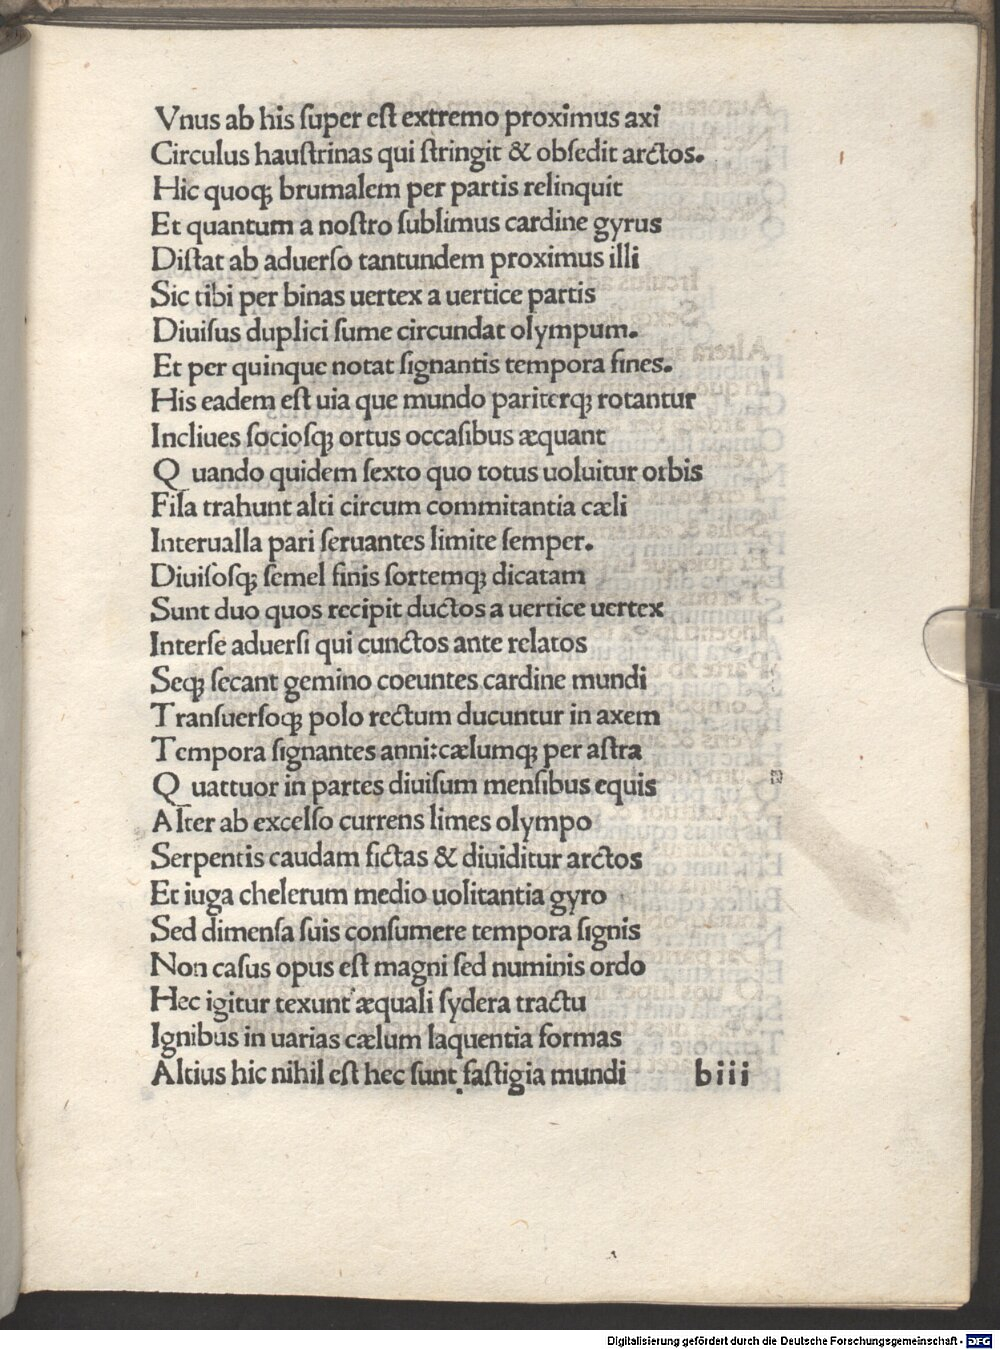 Vnus ab his ſuper eſt extremo proximus axi
Circulus hauſtrinas qui ſtringit & obſedit arctos.
Hic quoqꝫ brumalem per partis relinquit
Et quantum a noſtro ſublimus cardine gyrus
Diſtat ab aduerſo tantundem proximus illi
Sic tibi per binas uertex a uertice partis
Diuiſus duplici ſume circundat olympum.
Et per quinque notat ſignantis tempora fines.
His eadem eſt uia que mundo pariterqꝫ rotantur
Incliues ſocioſqꝫ ortus occaſibus æquant
Q uando quidem ſexto quo totus uoluitur orbis
Fila trahunt alti circum commitantia cæli
Interualla pari ſeruantes limite ſemper.
Diuiſoſqꝫ ſemel finis ſortemqꝫ dicatam
Sunt duo quos recipit ductos a uertice uertex
Interſe aduerſi qui cunctos ante relatos
Seqꝫ ſecant gemino coeuntes cardine mundi
Tranſuerſoqꝫ polo rectum ducuntur in axem
Tempora ſignantes anni:cælumqꝫ per aſtra
Q uattuor in partes diuiſum menſibus equis
Alter ab excelſo currens limes olympo
Serpentis caudam ſictas & diuiditur arctos
Et iuga chelerum medio uolitantia gyro
Sed dimenſa ſuis conſumere tempora ſignis
Non caſus opus eſt magni ſed numinis ordo
Hec igitur texunt æquali ſydera tractu
Ignibus in uarias cælum laquentia formas
Altius hic nihil eſt hec ſunt faſtigia mundi biii
Digitalisierung gefördert durch die Deutsche Forschungsgemeinschaft - DFG